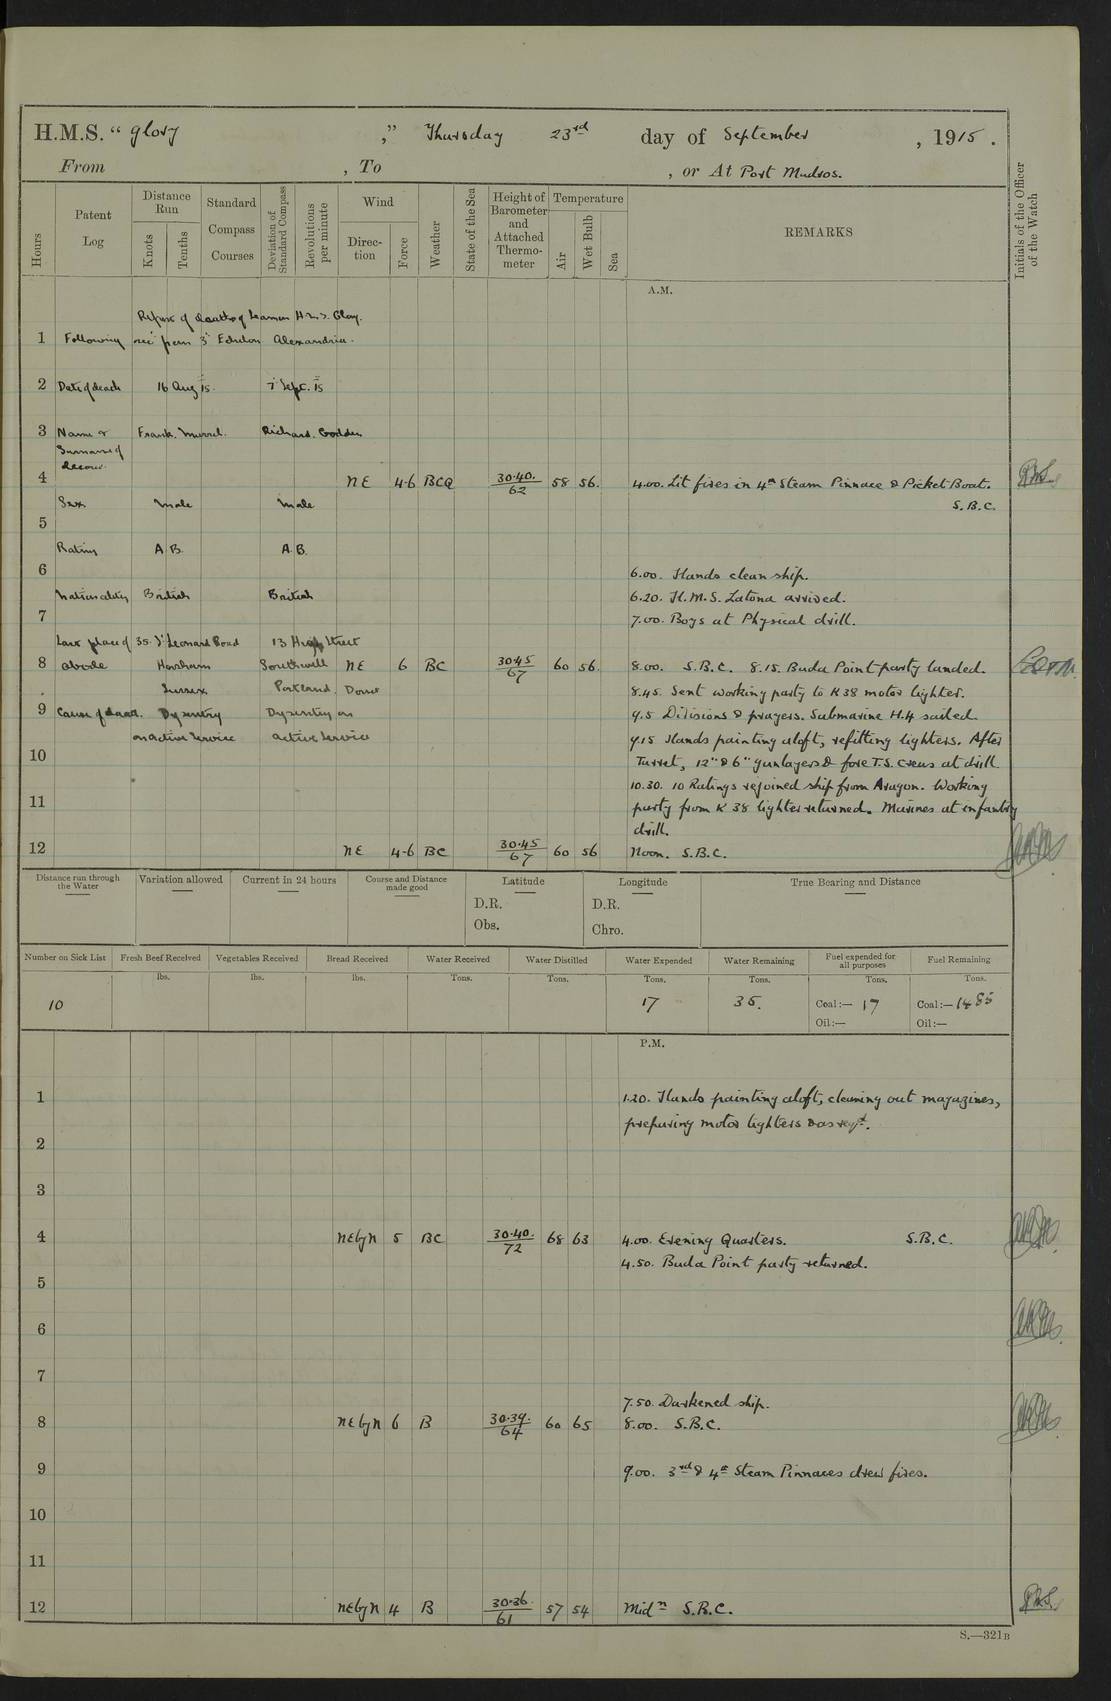 H.M.S. “ Glory ,” Thursday 23rd day of September , 1915 .
From , To , or At Port Mudros.
Hours
Patent Log
Distance Run
Knots
Tenths
Standard Compass Courses
Deviation of Standard Compass
Revolutions per minute
Wind
Direc-tion
Force
Weather
State of the Sea
Height of Barometer and Attached Thermo-meter
Temperature
Air
Wet Bulb
Sea
REMARKS
Initials of the Officer of the Watch
A.M.
Report of deaths of Seamen H.M.S. Glory.
1 Following rec'd from 3rd Echelon Alexandria.
2 Date of death 16 Aug 15. 7 Sept. 15
3 Name & Frank. Murrel. Richard. Godden
Surname of
4 NE 4-6 BCQ 30·40./62 58 56. 4.00. Lit fires in 4th Steam Pinnace & Picket Boat.
Sex male male S.B.C.
5
Rating A.B. A.B.
6 6.00. Hands clean ship.
Nationality British British 6.20. H.M.S. Latona arrived.
7 7.00. Boys at Physical drill.
Last place of 35. St Leonard Road 13 High Street
8 abode Horsham Southwell NE 6 BC 30·45/67 60 56. 8.00. S.B.C. 8.15. Buda Point party landed.
Sussex Portland. Dorset 8.45. Sent working party to K38 motor lighter.
9 Cause of death. Dysentery Dysentery on 9.5 Divisions & prayers. Submarine H.4 sailed.
on active service active service 9.15 Hands painting aloft, refitting lighters. After
10 Turret, 12" & 6" gunlayers & fore T.S. crews at drill.
10.30. 10 Ratings rejoined ship from Aragon. Working
11 party from K 38 lighter returned. Marines at infantry
drill.
12 NE 4-6 BC 30·45/67 60 56 Noon. S.B.C.
Distance run through the Water
Variation allowed
Current in 24 hours
Course and Distance made good
Latitude
D.R.
Obs.
Longitude
D.R.
Chro.
True Bearing and Distance
Number on Sick List
Fresh Beef Received
Vegetables Received
Bread Received
Water Received
Water Distilled
Water Expended
Water Remaining
Fuel expended for all purposes
Fuel Remaining
lbs. lbs. lbs. Tons. Tons. Tons. Tons. Tons. Tons.
10 17 35. Coal:— 17 Coal:— 1485
Oil:— Oil:—
P.M.
1 1.20. Hands painting aloft, cleaning out magazines,
preparing motor lighters & as reqd.
2
3
4 NEbyN 5 BC 30·40./72 68 63 4.00. Evening Quarters. S.B.C.
4.50. Buda Point party returned.
5
6
7
7.50. Darkened ship.
8 NEbyN 6 B 30·39./64 60 65 8.00. S.B.C.
9 9.00. 3rd & 4th Steam Pinnaces drew fires.
10
11
12 NEbyN 4 B 30·36./61 57 54 Midn S.B.C.
S.—321B